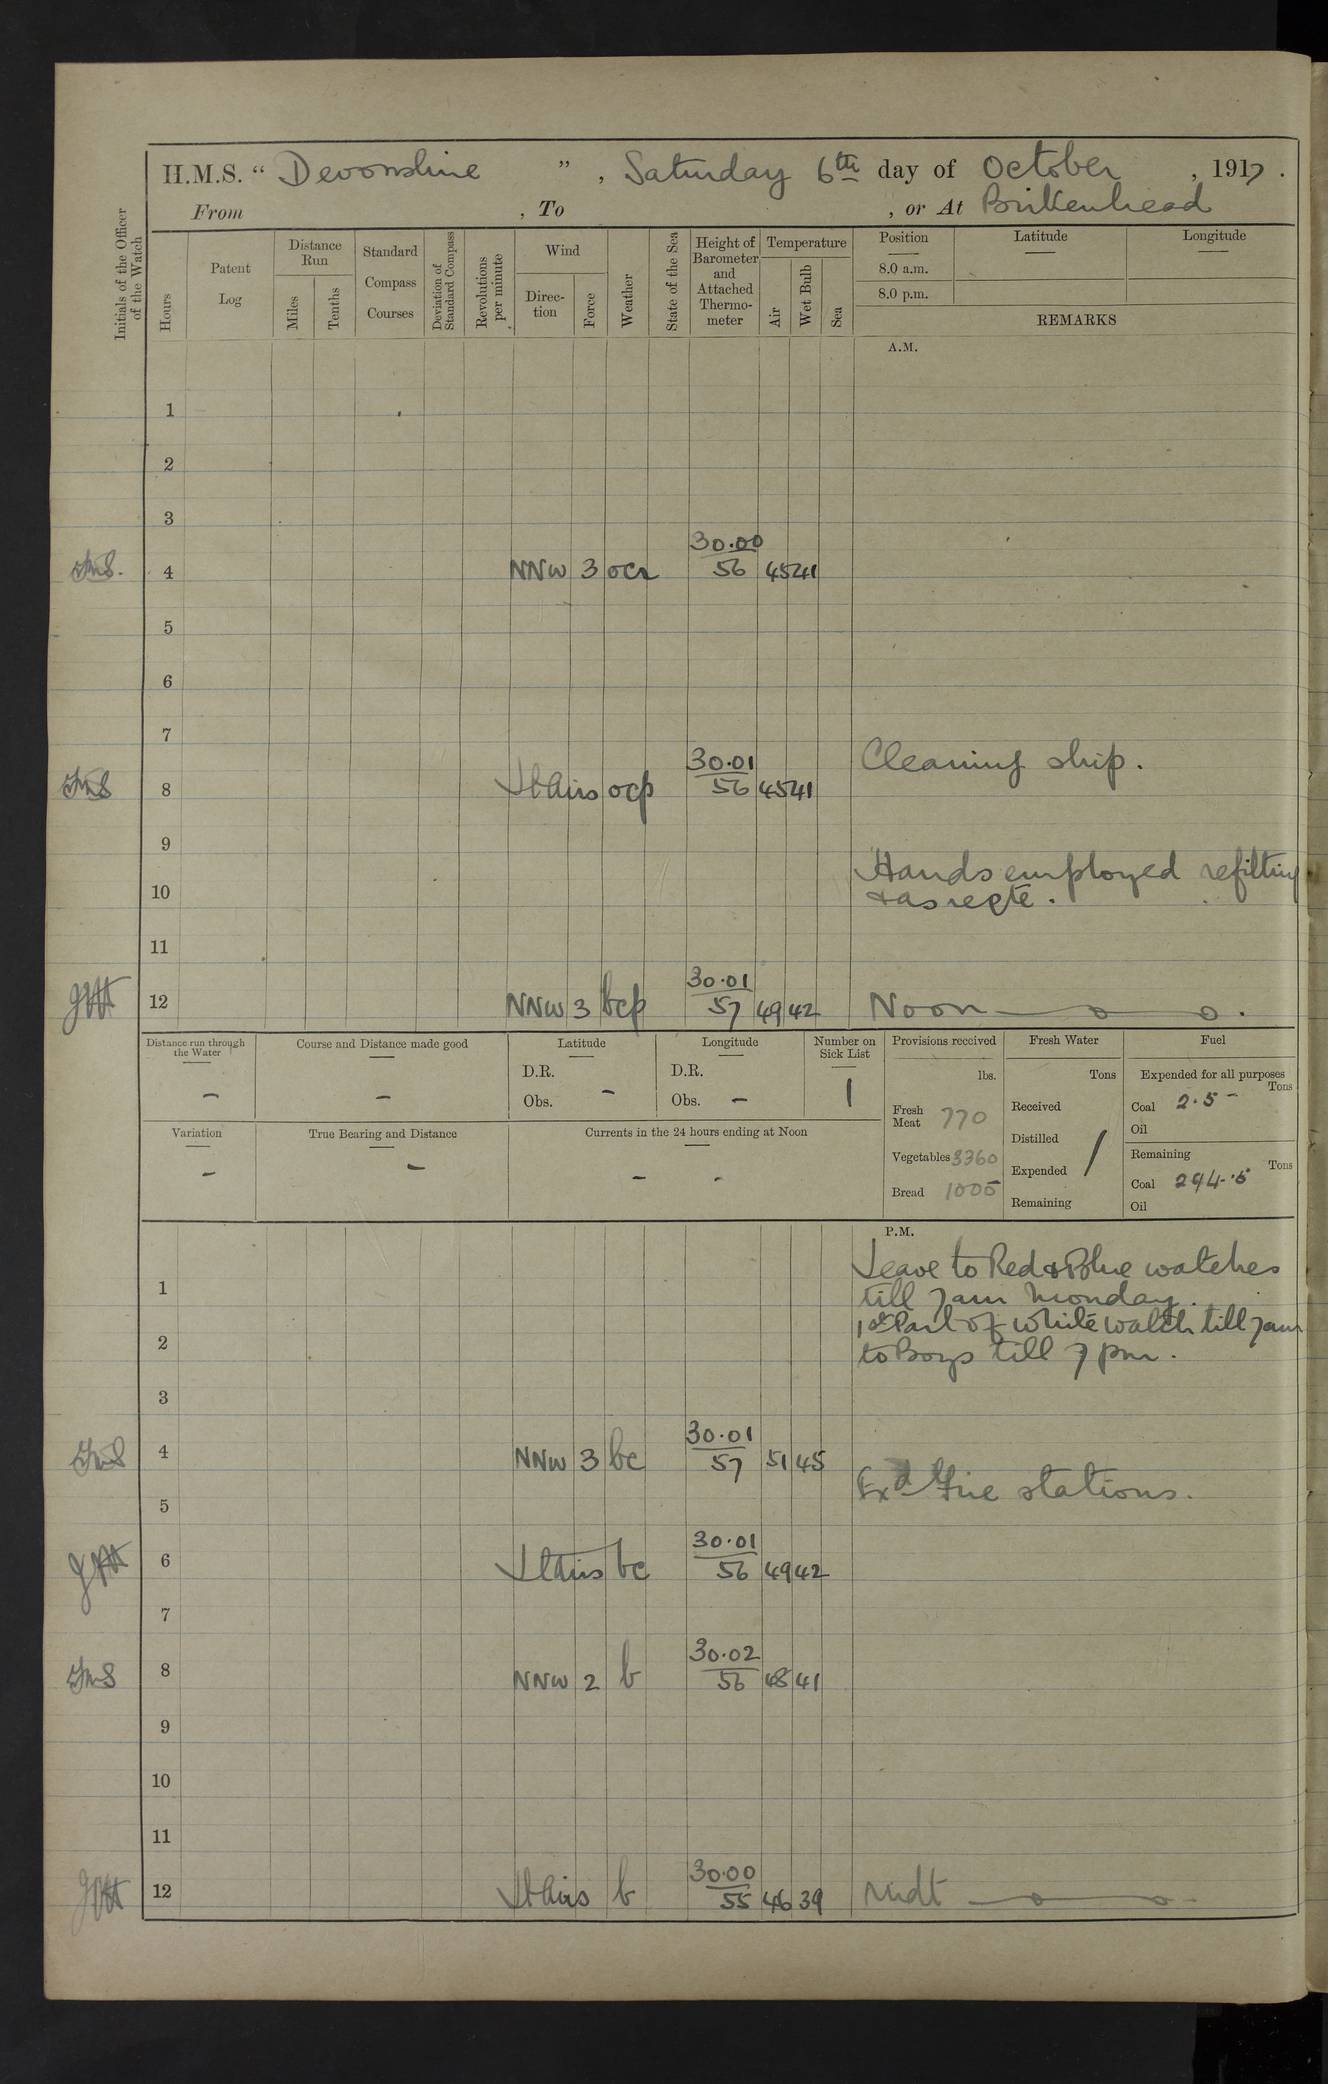 H.M.S. “ Devonshire ” , Saturday 6th day of October , 1917 .
From , To , or At Birkenhead
Initials of the Officer of the Watch
Hours
Patent Log
Distance Run
Miles
Tenths
Standard Compass Courses
Deviation of Standard Compass
Revolutions per minute
Wind
Direc-tion
Force
Weather
State of the Sea
Height of Barometer and Attached Thermo-meter
Temperature
Air
Wet Bulb
Sea
Position
8.0 a.m.
8.0 p.m.
Latitude
Longitude
REMARKS
A.M.
1
2
3
30.00
4 NNW 3 ocr 56 45 41
5
6
7
30.01 Cleaning ship.
8 Lt Airs ocp 56 45 41
9
Hands employed refitting
10 & as reqte.
11
30.01
12 NNW 3 bcp 57 49 42 Noon
Distance run through the Water
–
Course and Distance made good
–
Latitude
D.R.
Obs. –
Longitude
D.R.
Obs. –
Number on Sick List
1
Variation
–
True Bearing and Distance
–
Currents in the 24 hours ending at Noon
– -
Provisions received
lbs.
Fresh Meat 770
Vegetables 3360
Bread 1005
Fresh Water
Tons
Received
Distilled
Expended
Remaining
Fuel
Expended for all purposes
Tons
Coal 2.5 –
Oil
Remaining
Tons
Coal 294.5
Oil
P.M.
Leave to Red & Blue watches
1 till 7am Monday.
1st Part of White watch till 7am
2 to Boys till 7 pm.
3
30.01
4 NNW 3 bc 57 51 45
Exd Fire stations.
5
30.01
6 Lt airs bc 56 49 42
7
30.02
8 NNW 2 b 56 48 41
9
10
11
30.00
12 Lt Airs b 55 46 39 Midt